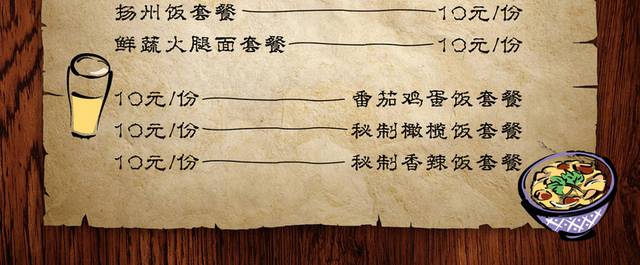 扬州饭套餐 10元/份
鲜蔬火腿面套餐 10元/份
10元/份 番茄鸡蛋饭套餐
10元/份 秘制橄榄饭套餐
10元/份 秘制香辣饭套餐